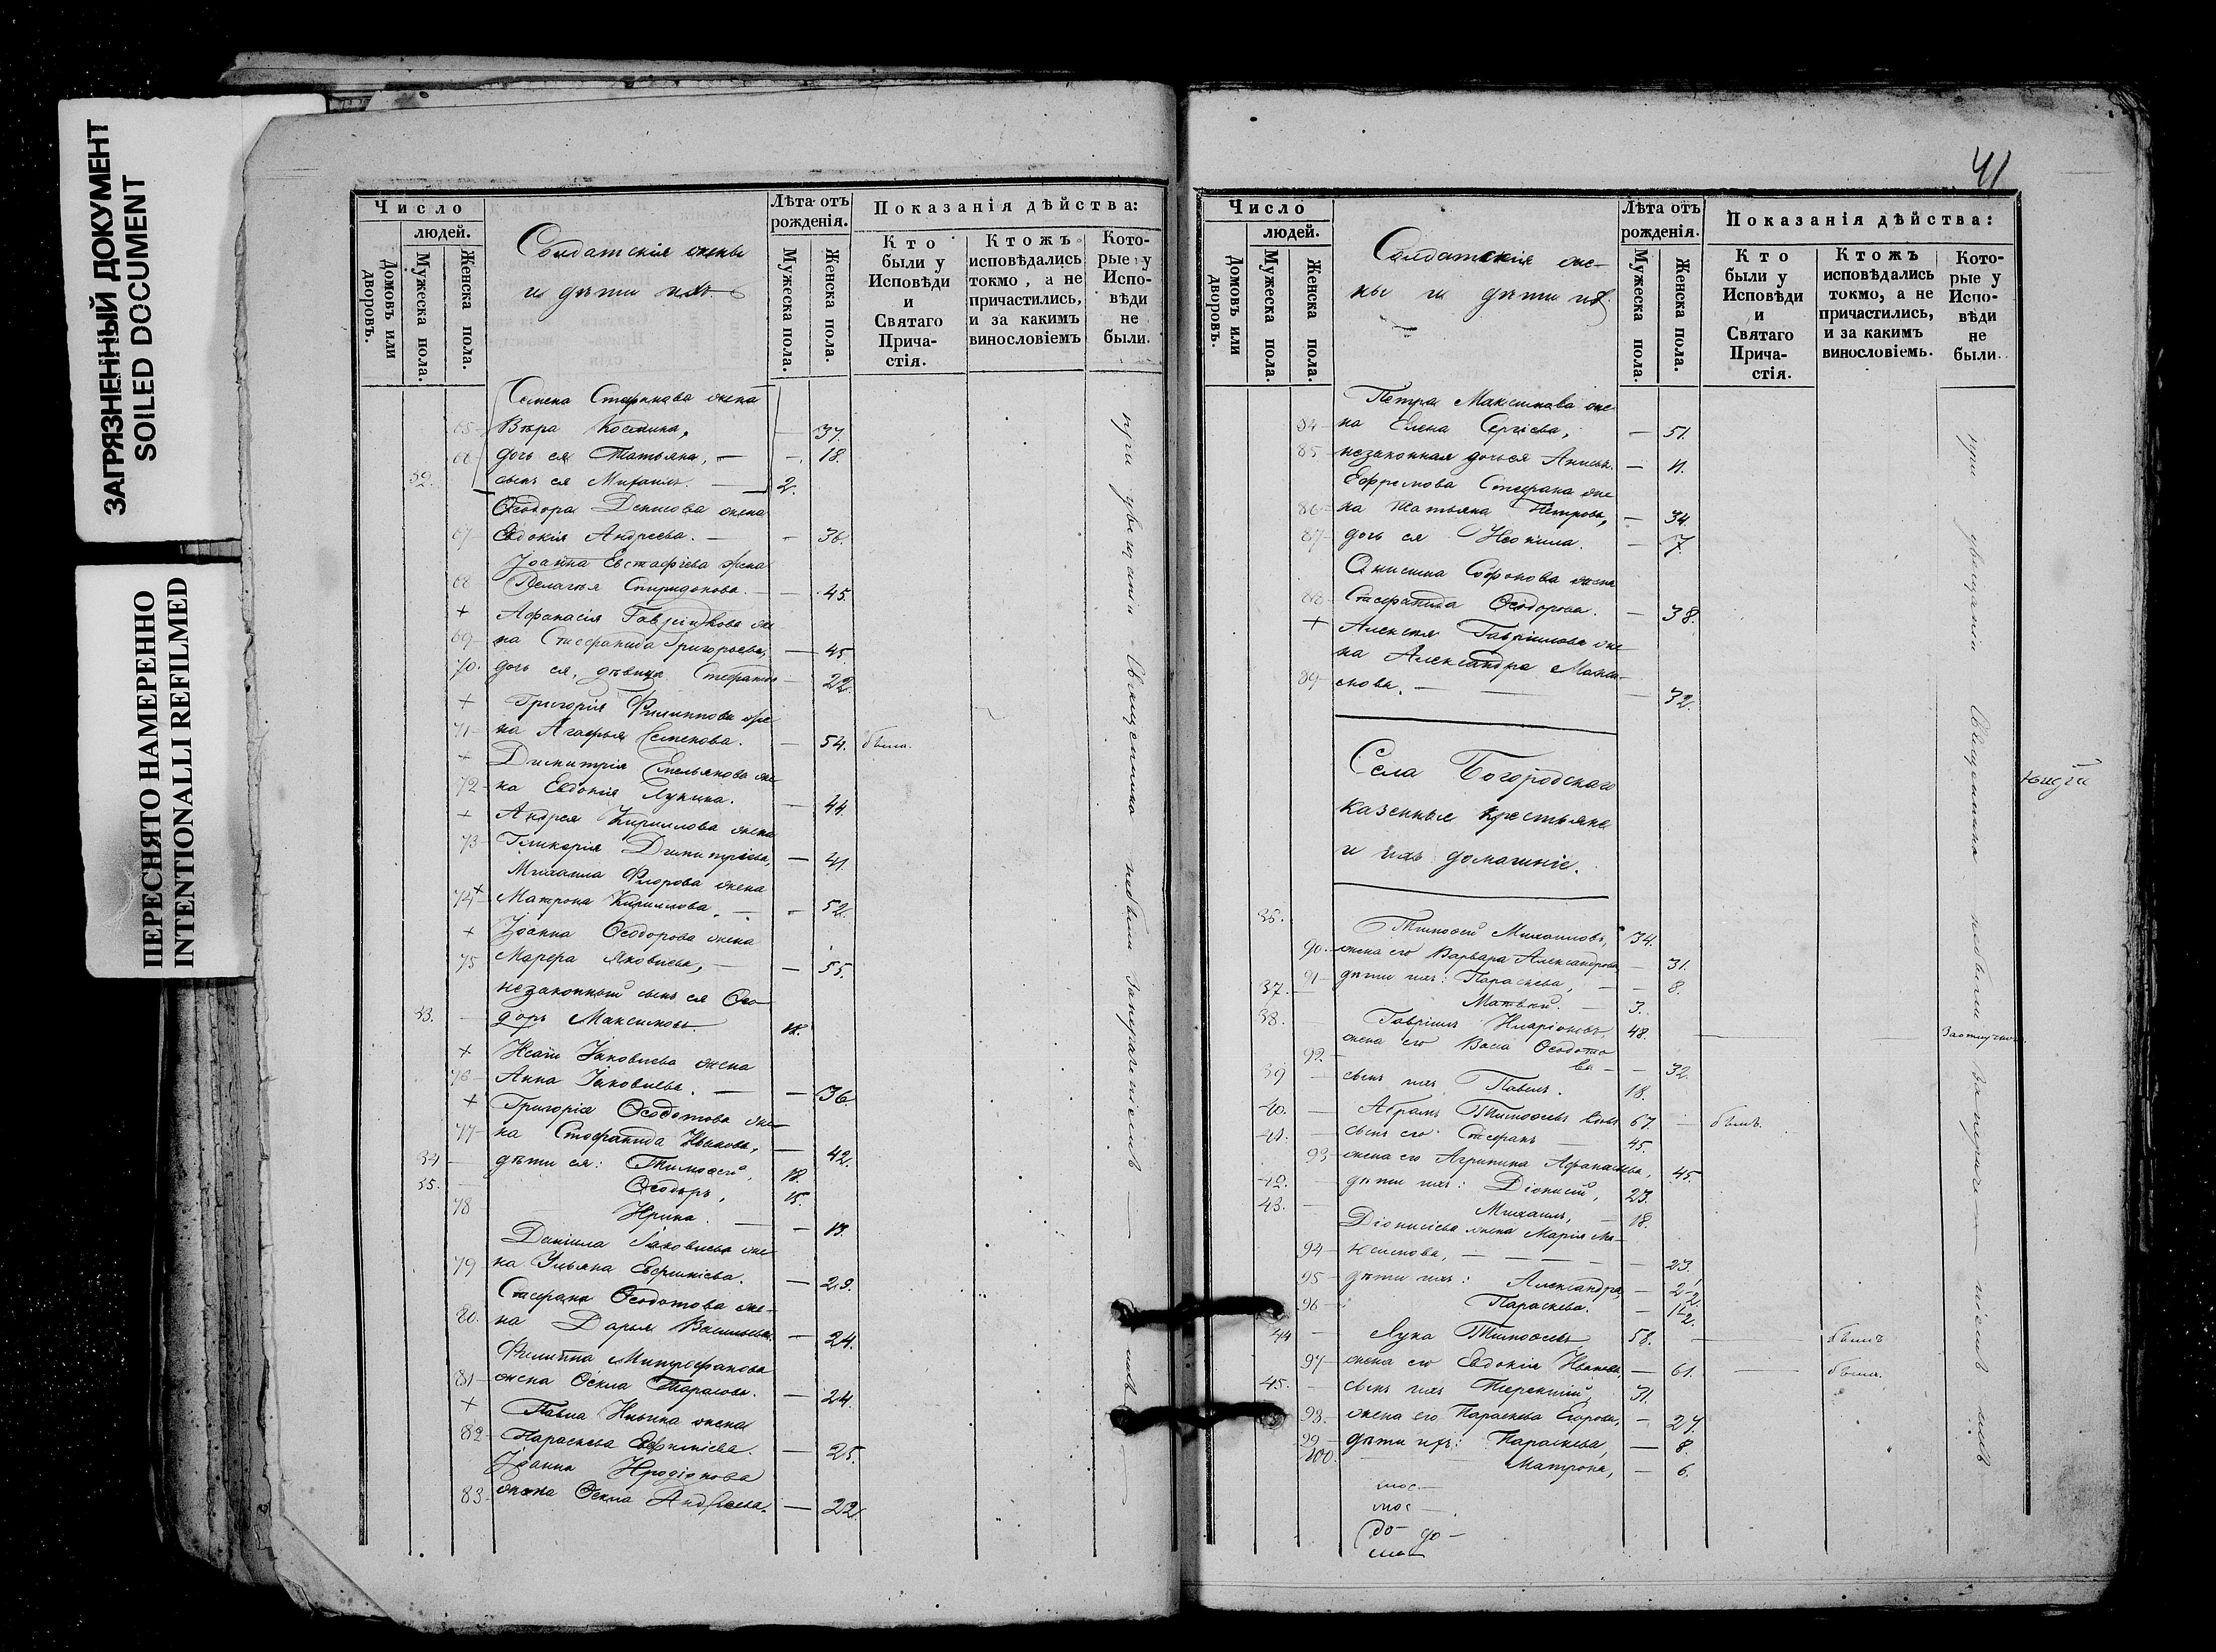 ЗАГРЯЗНЕННЫЙ ДОКУМЕНТ
SOILED DOCUMENT
ПЕРЕСНЯТО НАМЕРЕННО
INTENTIONALLI REFILMED
Число
людей.
Домовъ или дворовъ.
Мужеска пола.
Женска пола.
Солдатскія жены
и дѣти ихъ
Лѣта отъ рожденія.
Мужеска пола.
Женска пола.
Показанія дѣйства:
Кто были у Исповѣди и Святаго Прича-стія.
Ктожъ исповѣдались токмо, а не причастились, и за какимъ винословіемъ
Кото-рые у Испо-вѣди не были.
Семена Стефанова жена
65 Вѣра Космина, — 37.
66 дочь ея Татьяна, — — 18.
32. сынъ ея Михаилъ. — 2.
Ѳеодора Денисова жена
67 Евдокія Андреева. — — 36.
Іоанна Евстафіева жена
68 Пелагія Спиридонова. — — 45.
+ Афанасія Гавріилова же
69 на Стефанида Григорьева, — 45.
70. дочь ея, дѣвица — 22.
+ Григорія Филиппова же
71 на Агафья Семенова. — 54. была.
+ Димитрія Емельянова же
72 на Евдокія Лукина. — 44.
+ Андрея Кириллова жена
73 Гликерія Димитріева, — 41.
Михаила Флорова жена
74 + Матрона Кириллова. — — 52.
+ Іоанна Ѳеодорова жена
75 Марѳа Яковлева, — — 55.
незаконный сынъ ея Ѳео-
33. доръ Максимовъ.
+ Исаіи Іаковлева жена
76 Анна Іаковлева. — — 36.
+ Григорія Ѳеодотова же
77 на Стефанида Иванова, — 42.
34 дѣти ея: Тимоѳей, 18.
35. Ѳеодоръ, 15.
78 Ирина. — — 13.
Даніила Іаковлева же
79 на Ульяна Евфиміева. — 29.
Стефана Ѳеодотова же-
80. на Дарья Васильева — 24.
Филиппа Митрофанова
81 жена Ѳекла Тарасова. — 24.
+ Павла Ильина жена
82 Параскева Евфиміева. — 25.
Іоанна Иродіонова
83 жена Ѳекла Андреева. — 22.
при увѣщаніи Священника небыли за нерачениемъ
41
Число
людей.
Домовъ или дворовъ.
Мужеска пола.
Женска пола.
Солдатскія же-
ны и дѣти ихъ
Лѣта отъ рожденія.
Мужеска пола.
Женска пола.
Показанія дѣйства:
Кто были у Исповѣди и Святаго Прича-стія.
Ктожъ исповѣдались токмо, а не причастились, и за какимъ винословіемъ.
Кото-рые у Испо-вѣди не были.
Петра Максимова же
84 на Елена Сергіева, — 51.
85 незаконная дочь ея — 11.
Ефремова Стефана же
86 на Татьяна Петрова, — 34.
87 дочь ея Неонила. — 7.
Онисима Софонова жена
88 Стефанида Ѳеодорова. — 38.
+ Алексія Гавріилова же
на Александра Макси-
89 мова. — — 32.
Села Богородскаго
казенные крестьяне
и ихъ домашніе.
36. Тимоѳей Михаиловъ, 34.
90. жена его Варвара Александрова — 31.
91 дѣти ихъ: Параскева, — — 8.
37. Матвѣй. — 3.
38. Гавріилъ Иларіоновъ, 48. За отлуч
92. жена его Ѳеодото
ва — — 32.
39 сынъ ихъ Павелъ. 18.
40. Абрамъ Тимоѳеевъ вдовъ 67 — былъ.
41. сынъ его Стефанъ 45.
93 жена его Агрипина Афанасьева, 45.
42. дѣти ихъ: Діонисій, 23.
43. Михаилъ, 18.
Діонисіева жена Марія Ма-
94 ксимова, — — — 23.
95 дѣти ихъ: Александра, — 2-
96 Параскева. — 1
44 Лука Тимоѳеевъ 58. былъ
97 жена его Евдокія Иванова, — 61. была.
45. сынъ ихъ Терентій, 31.
98. жена его Параскева Егорова, — 27.
99 дѣти ихъ: Параскева, — 8.
100. Матрона, — 6.
при увѣщаніи Священника небыли за нерачениемъ